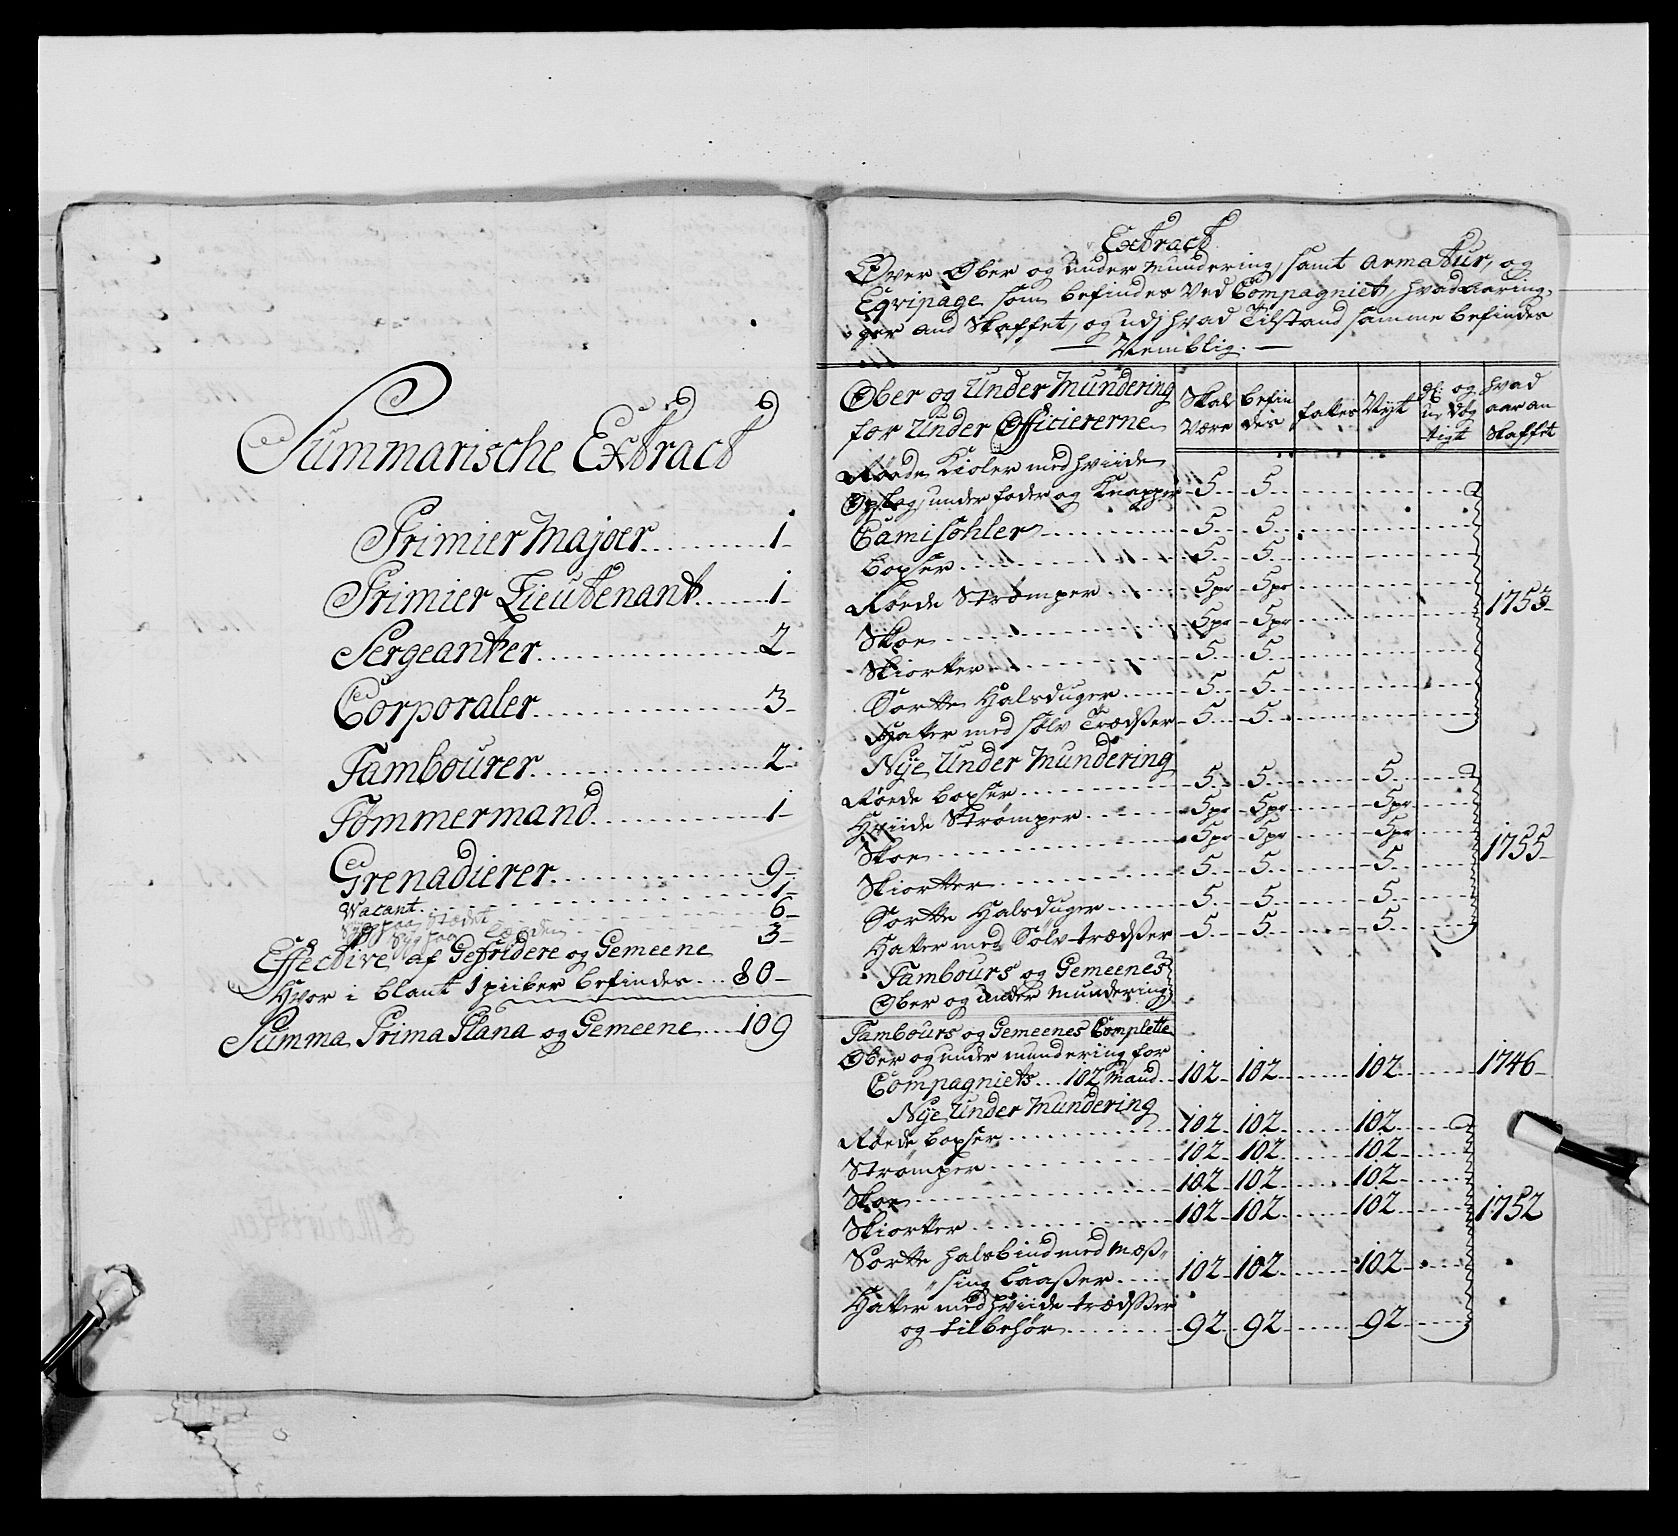 Summarische Extract
Primier Majoer 1
Primier Lieutenant 1
Sergeanter 2
Corporaler 3
Tambourer 2
Tømmermand 1
Grenadierer 9
Vacant 1
Syg paa Stædet 6
Syg paa Landet 3
Effective af Gefridere og Gemeene
Hvor i blant 1 piiber befindes 80
Summa Prima Plana og Gemeene 109
Extract
Over Ober og under Mundering, samt Armatur, og
Eqvipage som befindes Ved Compagniet, hvad aaring
er and Skaffet, og udj hvad Tilstand samme befindes
Nemblig.
Ober og Under Mundering for Under Officiererne | Skal Være | befindes | fattes | Nyt | og u-dygtigt | hvad aar an Skaffet
Røede Kioler med hviide
Opslag, under foder og Knapper 5 5
Camisohler 5 5
boxser 5 5
Røede Strømper 5 pr 5 pr 1753
Skoe 5 pr 5 pr
Skiorter 5 5
Sorte Halsduger 5 5
Hatter med sølv Trædsser 5 5
Nye Under Mundering
Røede boxser 5 5 5
Hviide Strømper 5 pr 5 pr 5 pr
Skoe 5 pr 5 pr 5 pr 1755
Skiorter 5 5 5
Sorte Halsduger 5 5 5
Hatter med Sølv trædsser 5 5 5
Tambours og Gemeenes
Ober og under Mundering
Tambours og Gemeenes Complette
Ober og under mundering for
Compagniets 102 Mand 102 102 102 1746
Nye Under Mundering
Røede boxser 102 102 102
Strømper 102 102 102
Skoe 102 102 102
Skiorter 102 102 102 1752
Sorte halsbind med Mæs-
sing Laasser 102 102 102
Hatter med hviide trædsser
og tilbehør 92 92 92